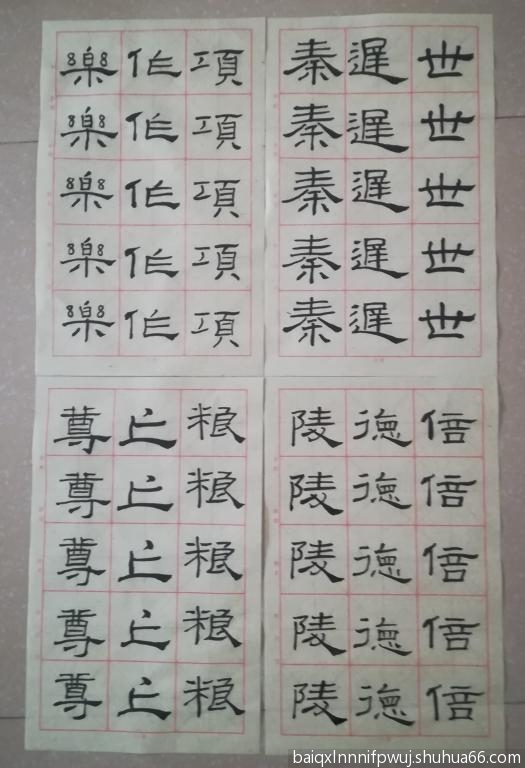 世世世世世
遲遲遲遲遲
秦秦秦秦秦
項項項項項
作作作作作
樂樂樂樂樂
倍倍倍倍倍
德德德德德
陵陵陵陵陵
粮粮粮粮粮
亡亡亡亡亡
尊尊尊尊尊
baiqxlnnnifpwuj.shuhua66.com